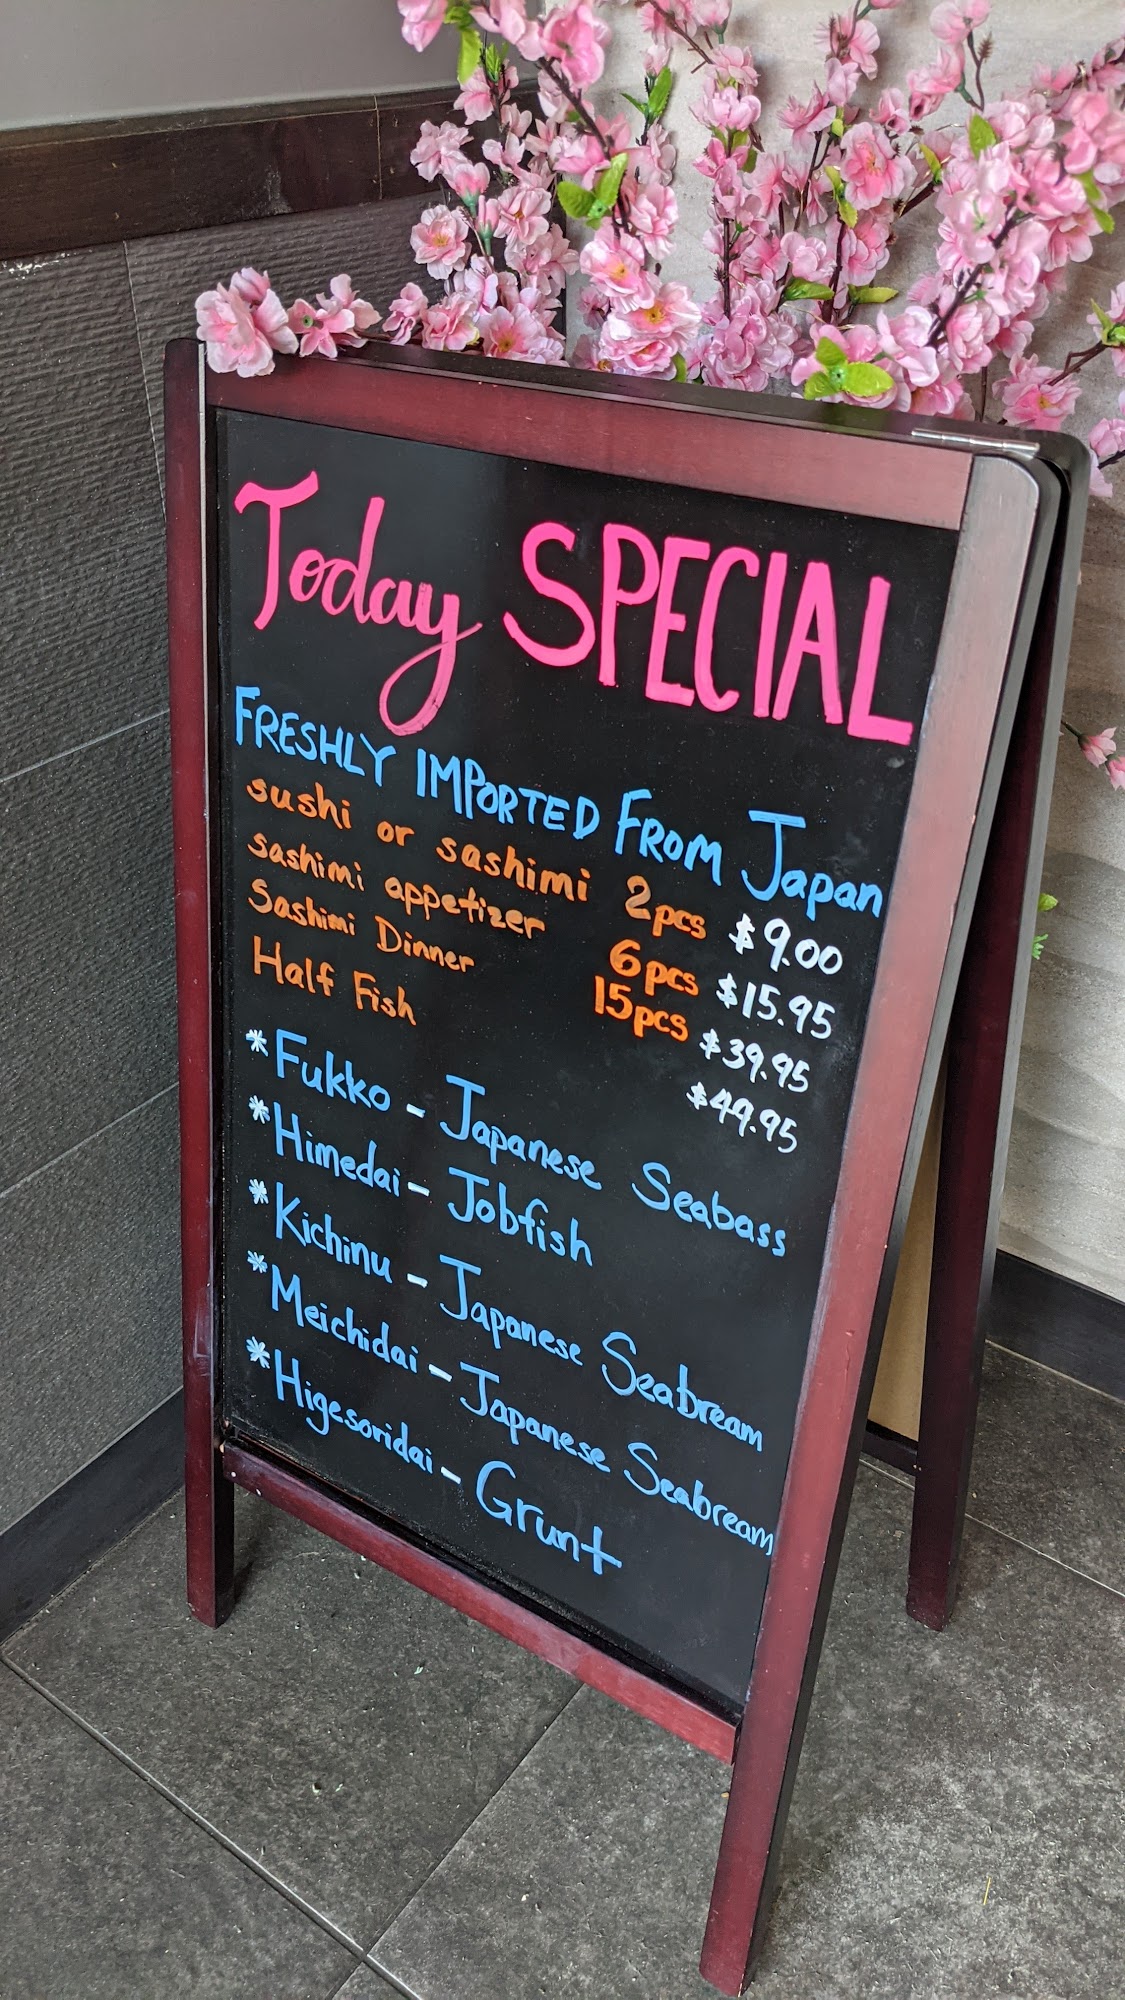 Today SPECIAL
FRESHLY IMPORTED FROM Japan
sushi or sashimi 2pcs $9.00
sashimi appetizer 6pcs $15.95
Sashimi Dinner 15pcs $39.95
Half Fish $49.95
* Fukko - Japanese Seabass
* Himedai - Jobfish
* Kichinu - Japanese Seabream
* Meichidai - Japanese Seabream
* Higesoridai - Grunt